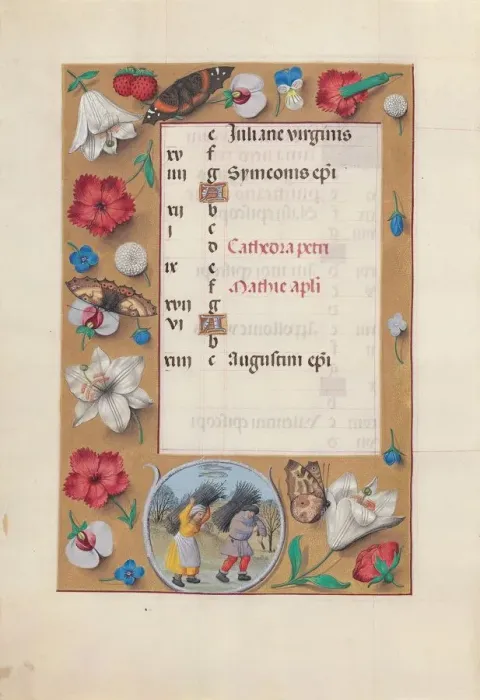 c Juliane virginis
xv f
iiii g Symeonis ep̄i
A
xii b
j c
d Cathedra petri
ix e
f Mathie apl̄i
xvii g
vi A
b
xiiii c Augustini ep̄i